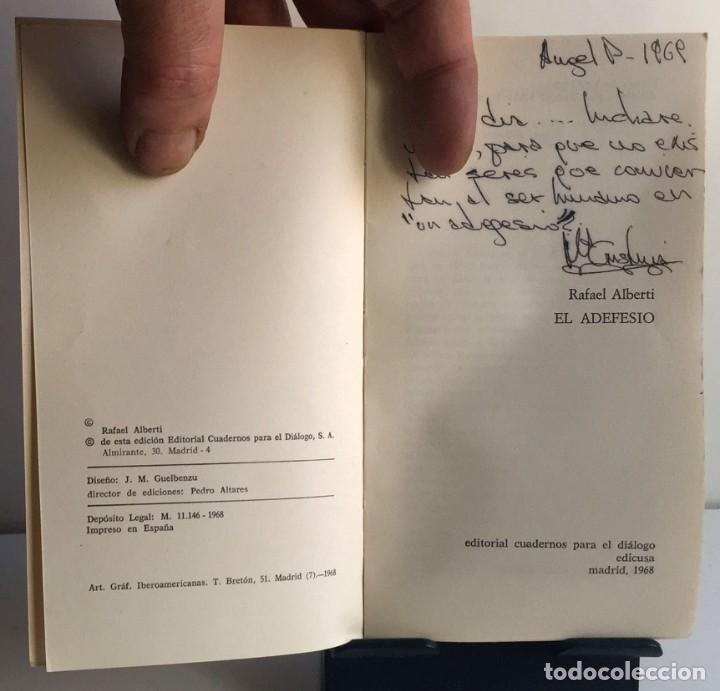 ©
Rafael Alberti
© de esta edición Editorial Cuadernos para el Diálogo, S. A.
Almirante, 30. Madrid - 4
Diseño: J. M. Guelbenzu
director de ediciones: Pedro Altares
Depósito Legal: M. 11.146 - 1968
Impreso en España
Art. Gráf. Iberoamericanas. T. Bretón, 51. Madrid (7).—1968
Angel P - 1969
.... luchare
, para que no exis
seres que convier
tan al ser humano en
"un adefesio".
Rafael Alberti
EL ADEFESIO
editorial cuadernos para el diálogo
edicusa
madrid, 1968
todocoleccion